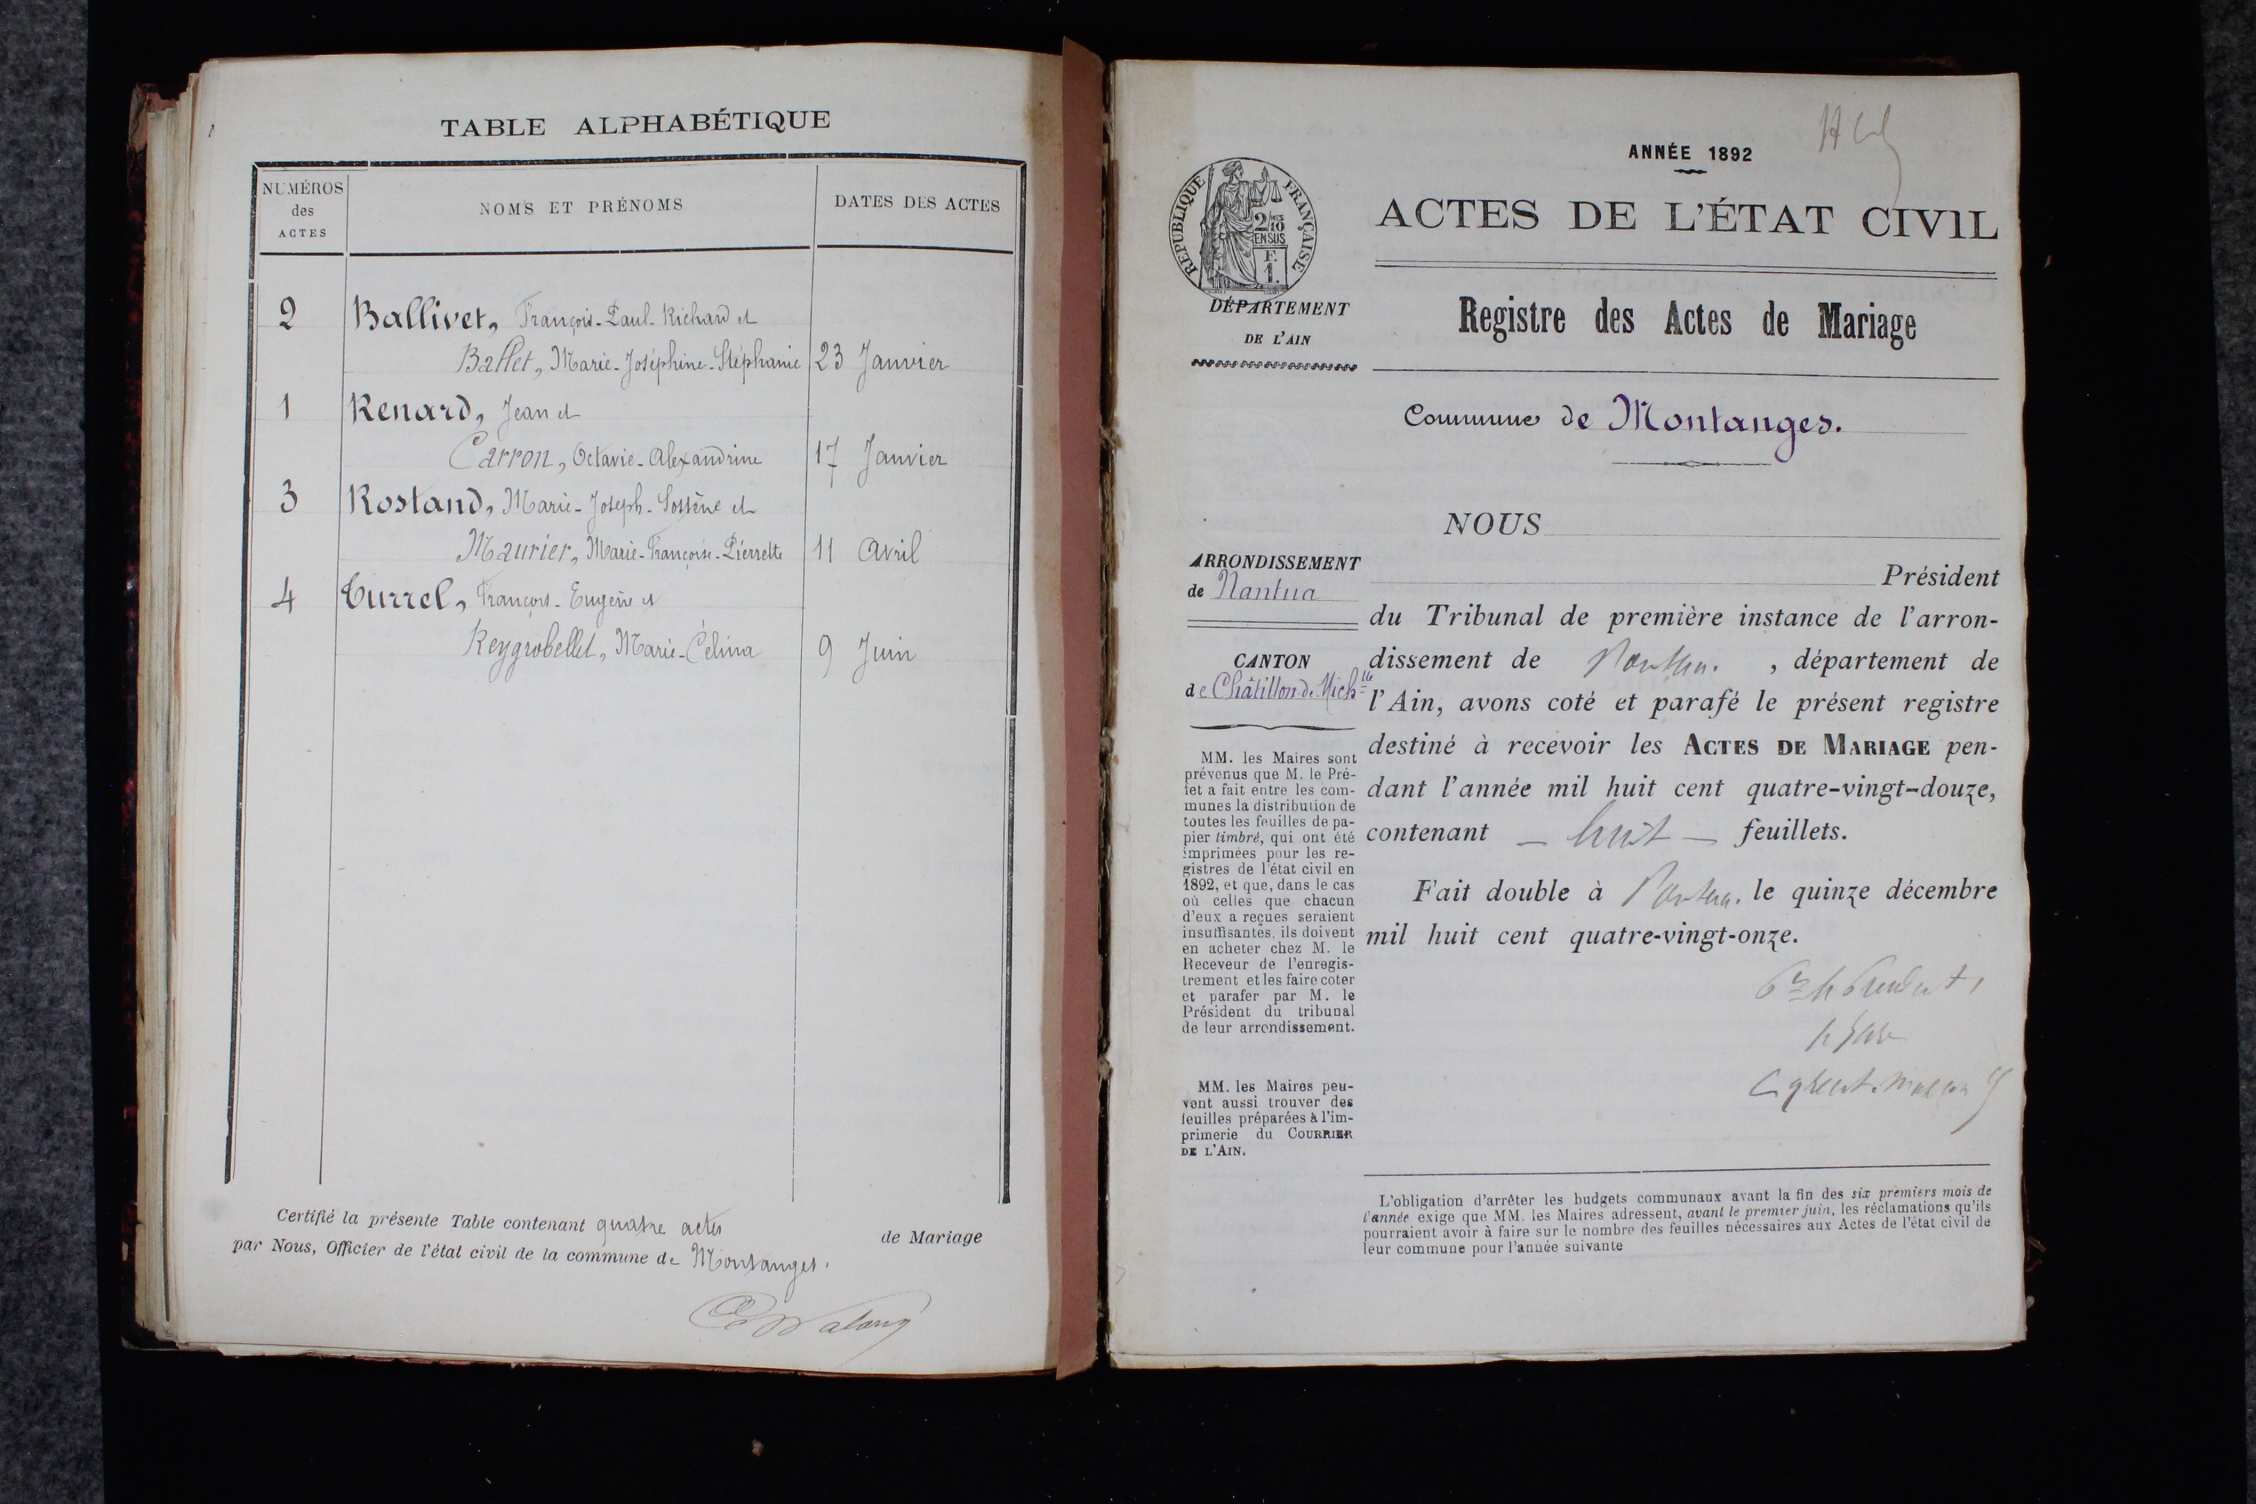 TABLE ALPHABÉTIQUE
NUMÉROS
des
ACTES
NOMS ET PRÉNOMS
DATES DES ACTES
2 Ballivet, François-Paul-Richard et
Ballet, Marie-Joséphine-Stéphanie 23 Janvier
1 Renard, Jean et
Carron, Octavie-Alexandrine 17 Janvier
3 Rostand, Marie-Joseph-Sostène et
Maurier, Marie-Françoise-Pierrette 11 Avril
4 Turrel, François-Eugène et
Reygrobellet, Marie-Célina 9 Juin
Certifié la présente Table contenant quatre actes de Mariage
par Nous, Officier de l'état civil de la commune de Montanges.
ANNÉE 1892
RÉPUBLIQUE FRANÇAISE
2/10
EN SUS
F.
1.
ACTES DE L'ÉTAT CIVIL
DÉPARTEMENT
DE L'AIN
Registre des Actes de Mariage
Commune de Montanges.
NOUS
ARRONDISSEMENT
de Nantua
CANTON
de Châtillon-de-Mich^lle
Président
du Tribunal de première instance de l'arron-
dissement de Nantua. , département de
l'Ain, avons coté et parafé le présent registre
destiné à recevoir les ACTES DE MARIAGE pen-
dant l'année mil huit cent quatre-vingt-douze,
contenant – huit – feuillets.
Fait double à Nantua. le quinze décembre
mil huit cent quatre-vingt-onze.
MM. les Maires sont
prévenus que M. le Pré-
fet a fait entre les com-
munes la distribution de
toutes les feuilles de pa-
pier timbré, qui ont été
imprimées pour les re-
gistres de l'état civil en
1892, et que, dans le cas
où celles que chacun
d'eux a reçues seraient
insuffisantes, ils doivent
en acheter chez M. le
Receveur de l'enregis-
trement et les faire coter
et parafer par M. le
Président du tribunal
de leur arrondissement.
MM. les Maires peu-
vent aussi trouver des
feuilles préparées à l'im-
primerie du COURRIER
DE L'AIN.
L'obligation d'arrêter les budgets communaux avant la fin des six premiers mois de
l'année exige que MM. les Maires adressent, avant le premier juin, les réclamations qu'ils
pourraient avoir à faire sur le nombre des feuilles nécessaires aux Actes de l'état civil de
leur commune pour l'année suivante